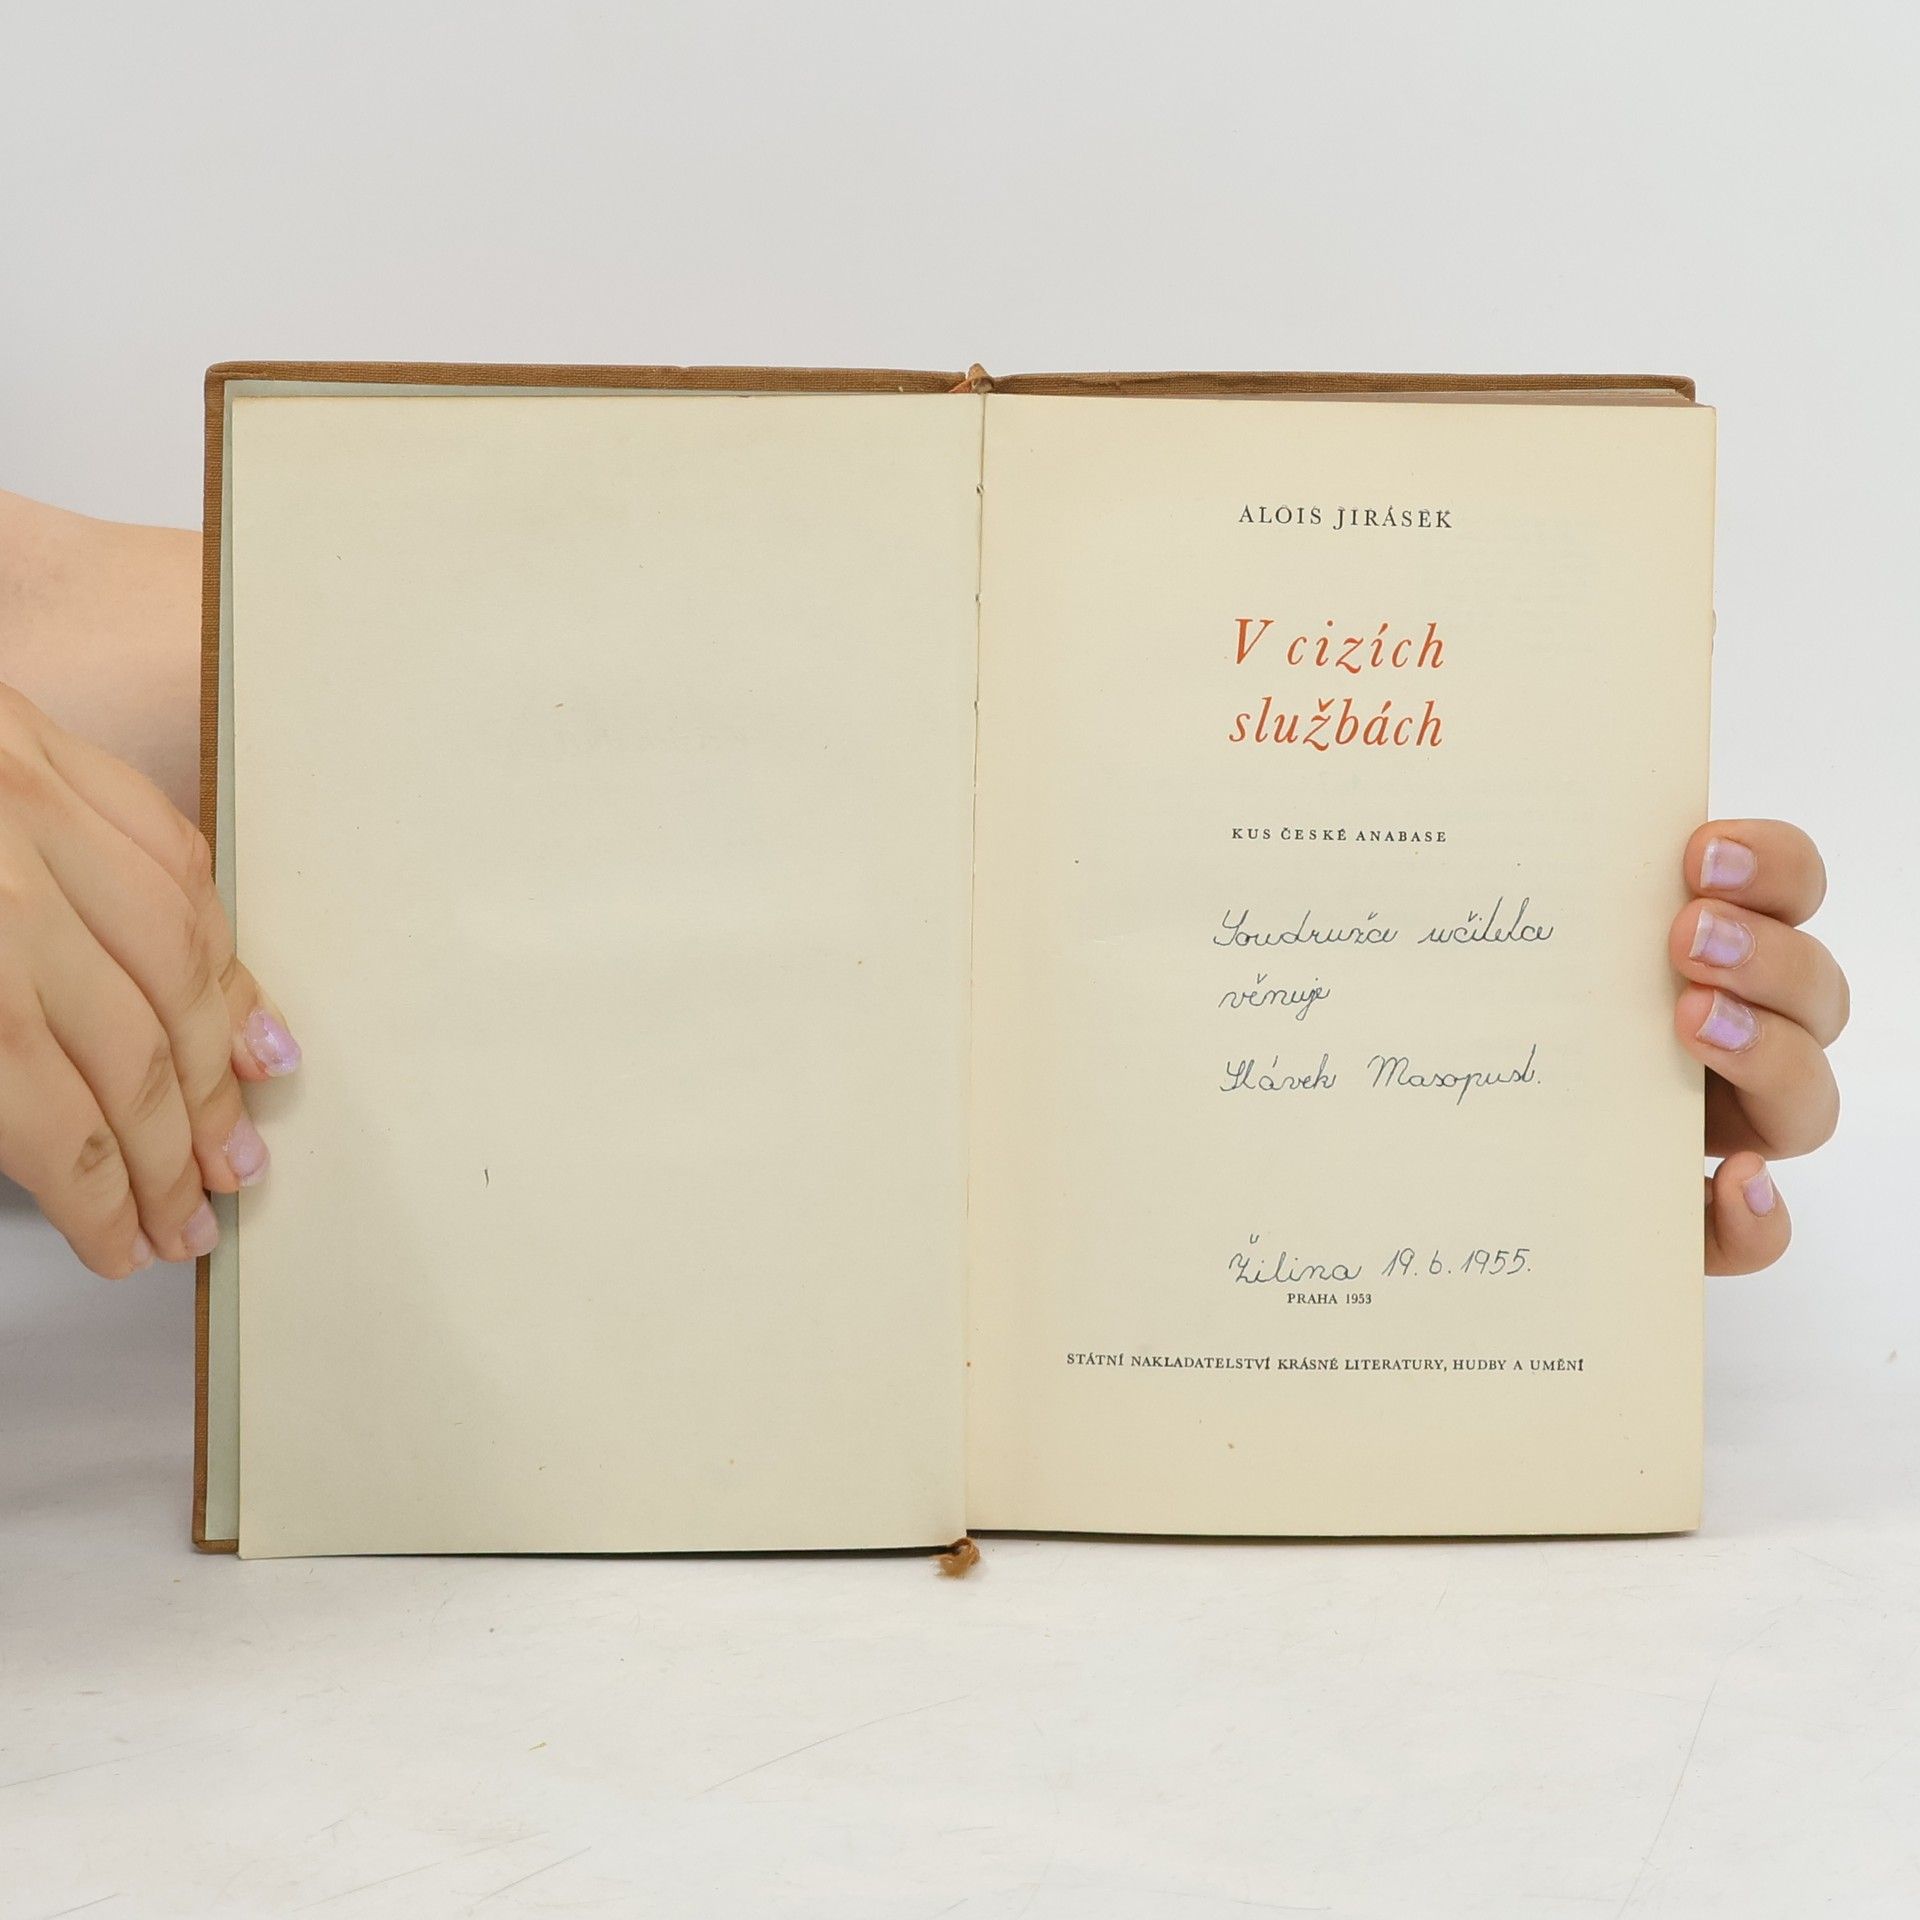 ALOIS JIRÁSEK
V cizích
službách
KUS ČESKÉ ANABASE
Soudružce učitelce
věnuje
Slávek Masopust.
Žilina 19. 6. 1955.
PRAHA 1953
STÁTNÍ NAKLADATELSTVÍ KRÁSNÉ LITERATURY, HUDBY A UMĚNÍ